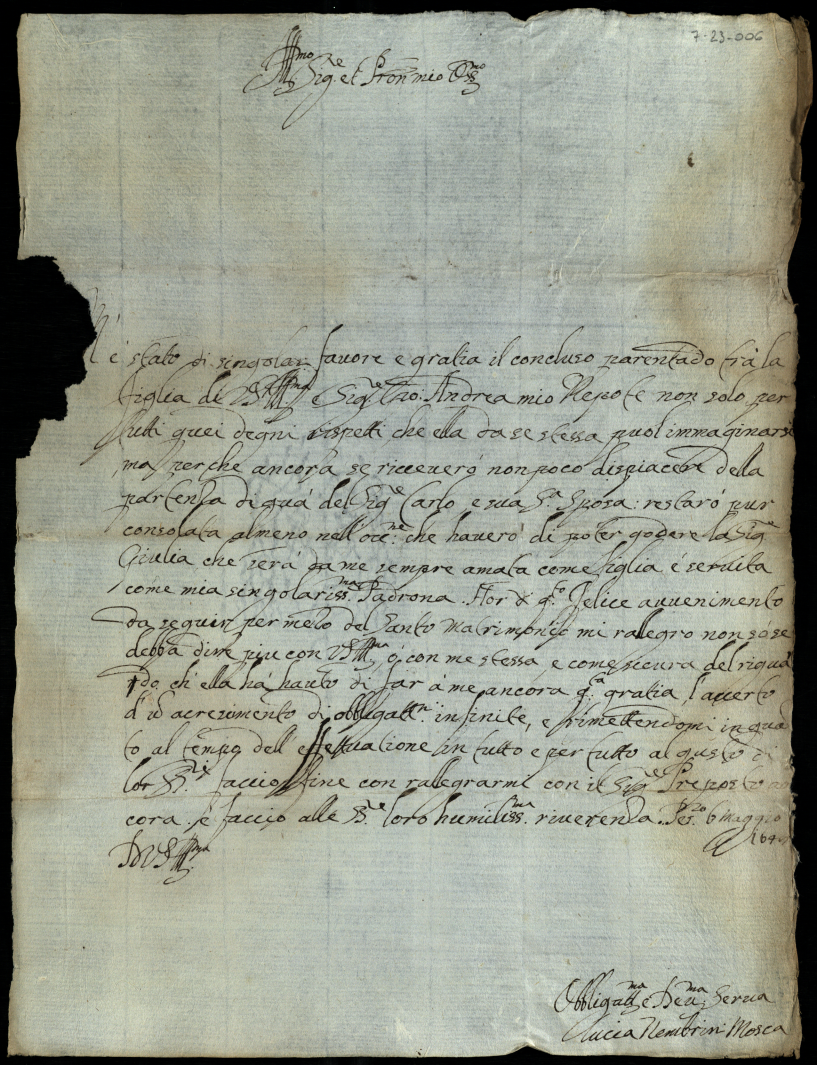 7-23-006
Ill.mo Sig.re et Pron mio Oss.mo
M' é stato di singolar favore e gratia il concluso parentado trà la
figlia di V.S. Ill.ma e Sig.re Gio: Andrea mio Nepote non solo per
tutti quei degni rispetti che ella da se stessa puol immaginarsi
ma perche ancora se riceveró non poco dispiacere della
partenza di quá del Sig.re Carlo e sua S.a Sposa: restaró pur
consolata almeno nell'occ.ne che haveró di poter godere la Sig.ra
Giulia che será da me sempre amata come figlia é servita
come mia singolariss.ma Padrona. Hor di q.to felice avvenimento
da seguir per mezo del Santo Matrimonio mi rallegro non só se
debba dire piu con V.S. Ill.ma, ó con me stessa e come sicura del rigua
do, ch'ella há hauto di far á me ancora q.a gratia, l'accerto
d'un acrescimento di obbligatt.ni infinite, e rimettendomi in qua
to al tempo dell'effettuatione in tutto e per tutto al gusto di
lor SS.ri faccio fine con rallegrarmi con il Sig.re Preposto an
cora. é faccio alle SS.re loro humiliss.ma riverenza. Pes.ro 6 Maggio
164
D V.S. Ill.ma
Obbligatt.ma e Dev.ma Serva
Lucia Nembrini Mosca